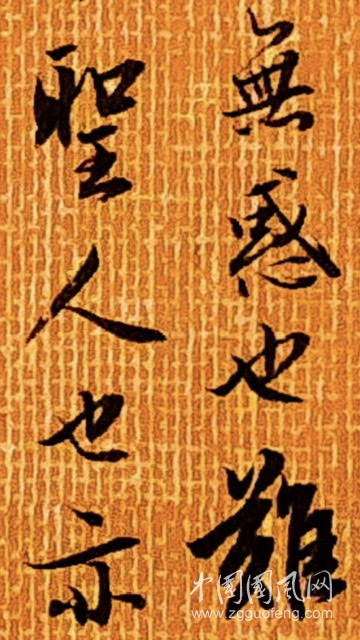 無惑也雖
聖人也亦
中国國风网
www.zgguofeng.com